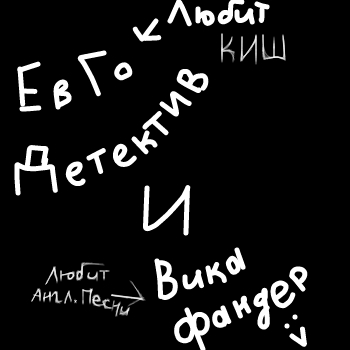 Любит
КИШ
ЕвГо
Детектив
И
Любит
Англ. Песни
Вика
фандер